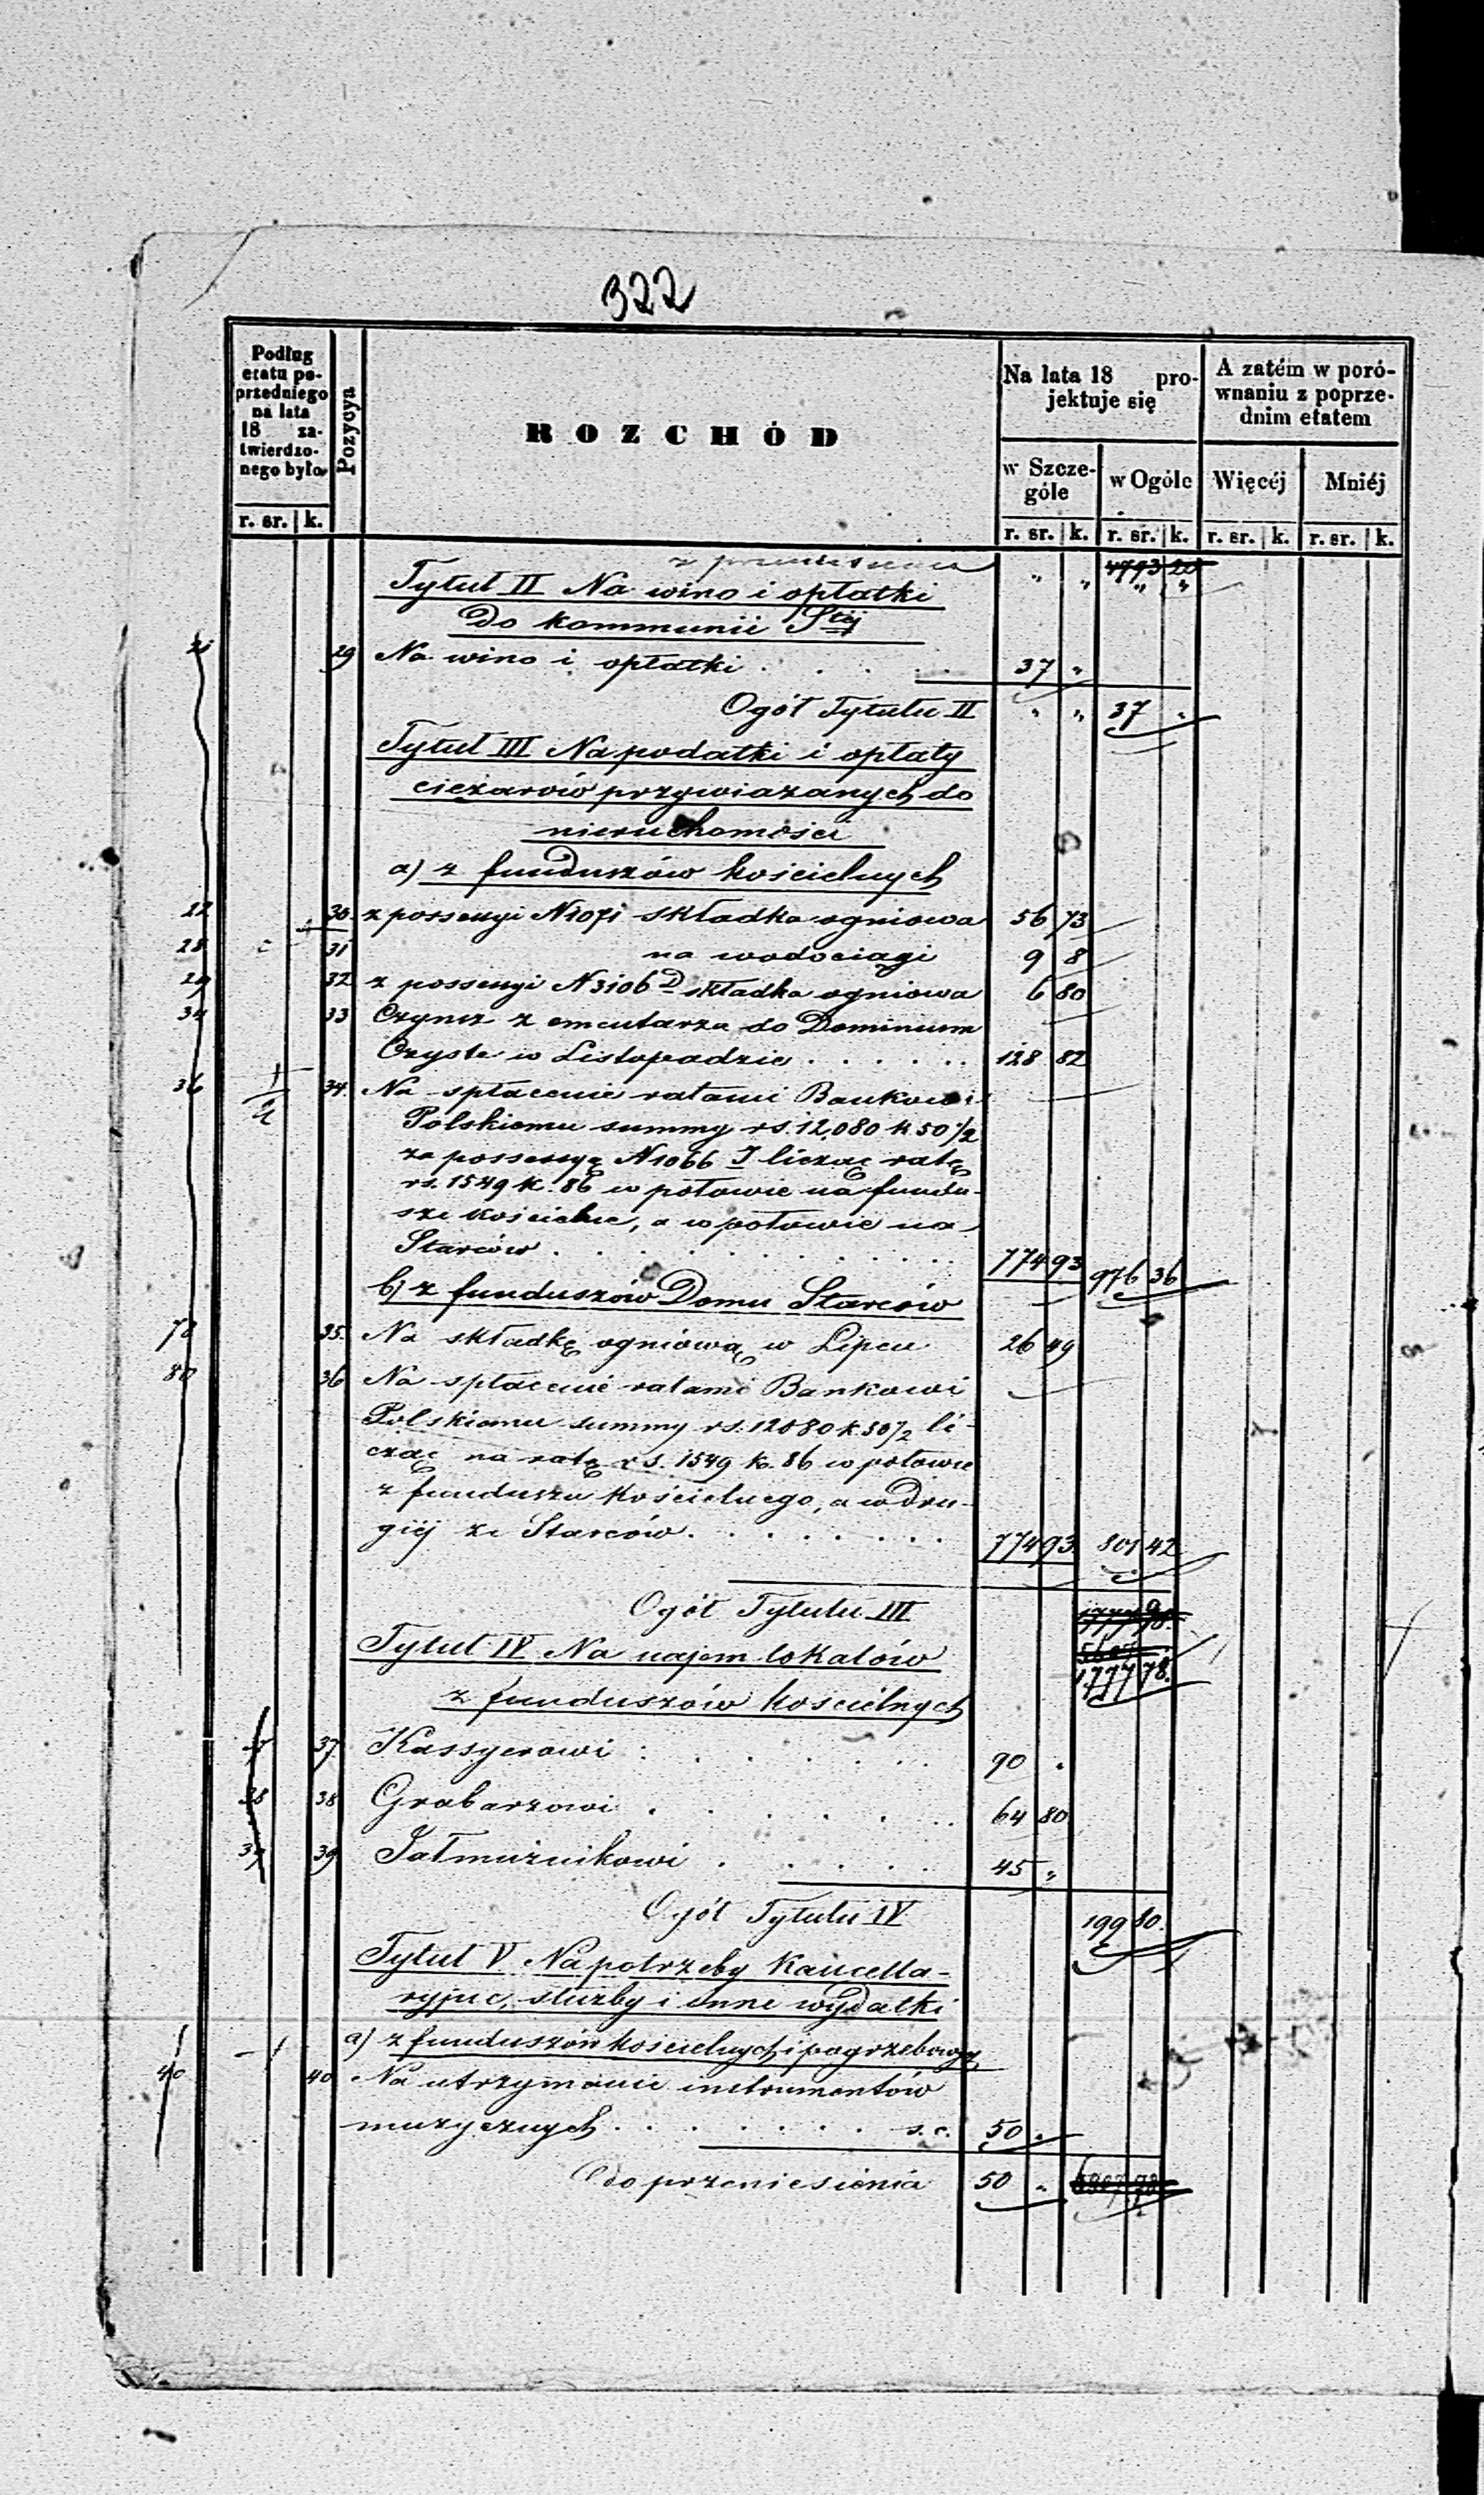 322
Podług etatu poprzedniego na lata 18 zatwierdzonego było
Pozycya
ROZCHÓD
Na lata 18 projektuje się
A zatém w porównaniu z poprzednim etatem
w Szczególe
w Ogóle
Więcéj
Mniéj
r. sr. k. r. sr. k. r. sr. k. r. sr. k. r. sr. k.
z przeniesienia „ „ 4793 20
Tytuł II Na wino i opłatki
Do kommunii Stej
29 Na wino i opłatki . . . . 37 „
Ogół Tytułu II „ „ 37 „
Tytuł III Na podatki i opłaty
ciężarów przywiazanych do
nieruchomości
a) z funduszów kościelnych
30. z possessyi N 1071 składka ogniowa 56 73
28 31 na wodociągi 9 8
29 32 z possessyi N 3106 D składka ogniowa 6 80
34 33 Czynsz z cmentarza do Dominium
Czyste w Listopadzie . . . . . . 128 82
36 34. Na spłacenie ratami Bankowi
Polskiemu summy rs. 12,080 k 50 1/2
za possessyę N 1066 J licząc ratę
rs. 1549 k. 86 w połowie na fundu-
sze kościelne, a w połowie na
Starców . . . . . . . . 774 93 976 36
b) z funduszów Domu Starców
78 35. Na składkę ogniową w Lipcu 26 49
80 36 Na spłacenie ratami Bankowi
Polskiemu summy rs. 12080 k. 50 1/2 li-
cząc na ratę rs. 1549 k. 86 w połowie
z funduszu kościelnego, a w dru-
giéj ze Starców . . . . . . . 774 93. 801 42
Ogół Tytułu III
1777 78.
Tytuł IV Na najem lokalów
z funduszów kościelnych
37 Kassyerowi . . . . . . 90 „
38 38 Grabarzowi . . . . . . 64 80
39 39 Jałmużnikowi . . . . . 45 „
Ogół Tytułu IV 199 80.
Tytuł V Na potrzeby Kancella-
ryjne, służby i inne wydatki
a) z funduszów kościelnych i pogrzebowych
40 40 Na utrzymanie instrumentów
muzycznych . . . . . . . s. c. 50 „
Do przeniesienia 50 „